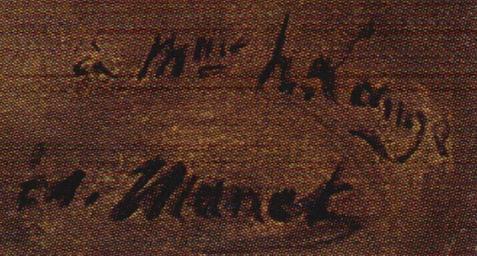 à Mme H. Lange
éd. Manet